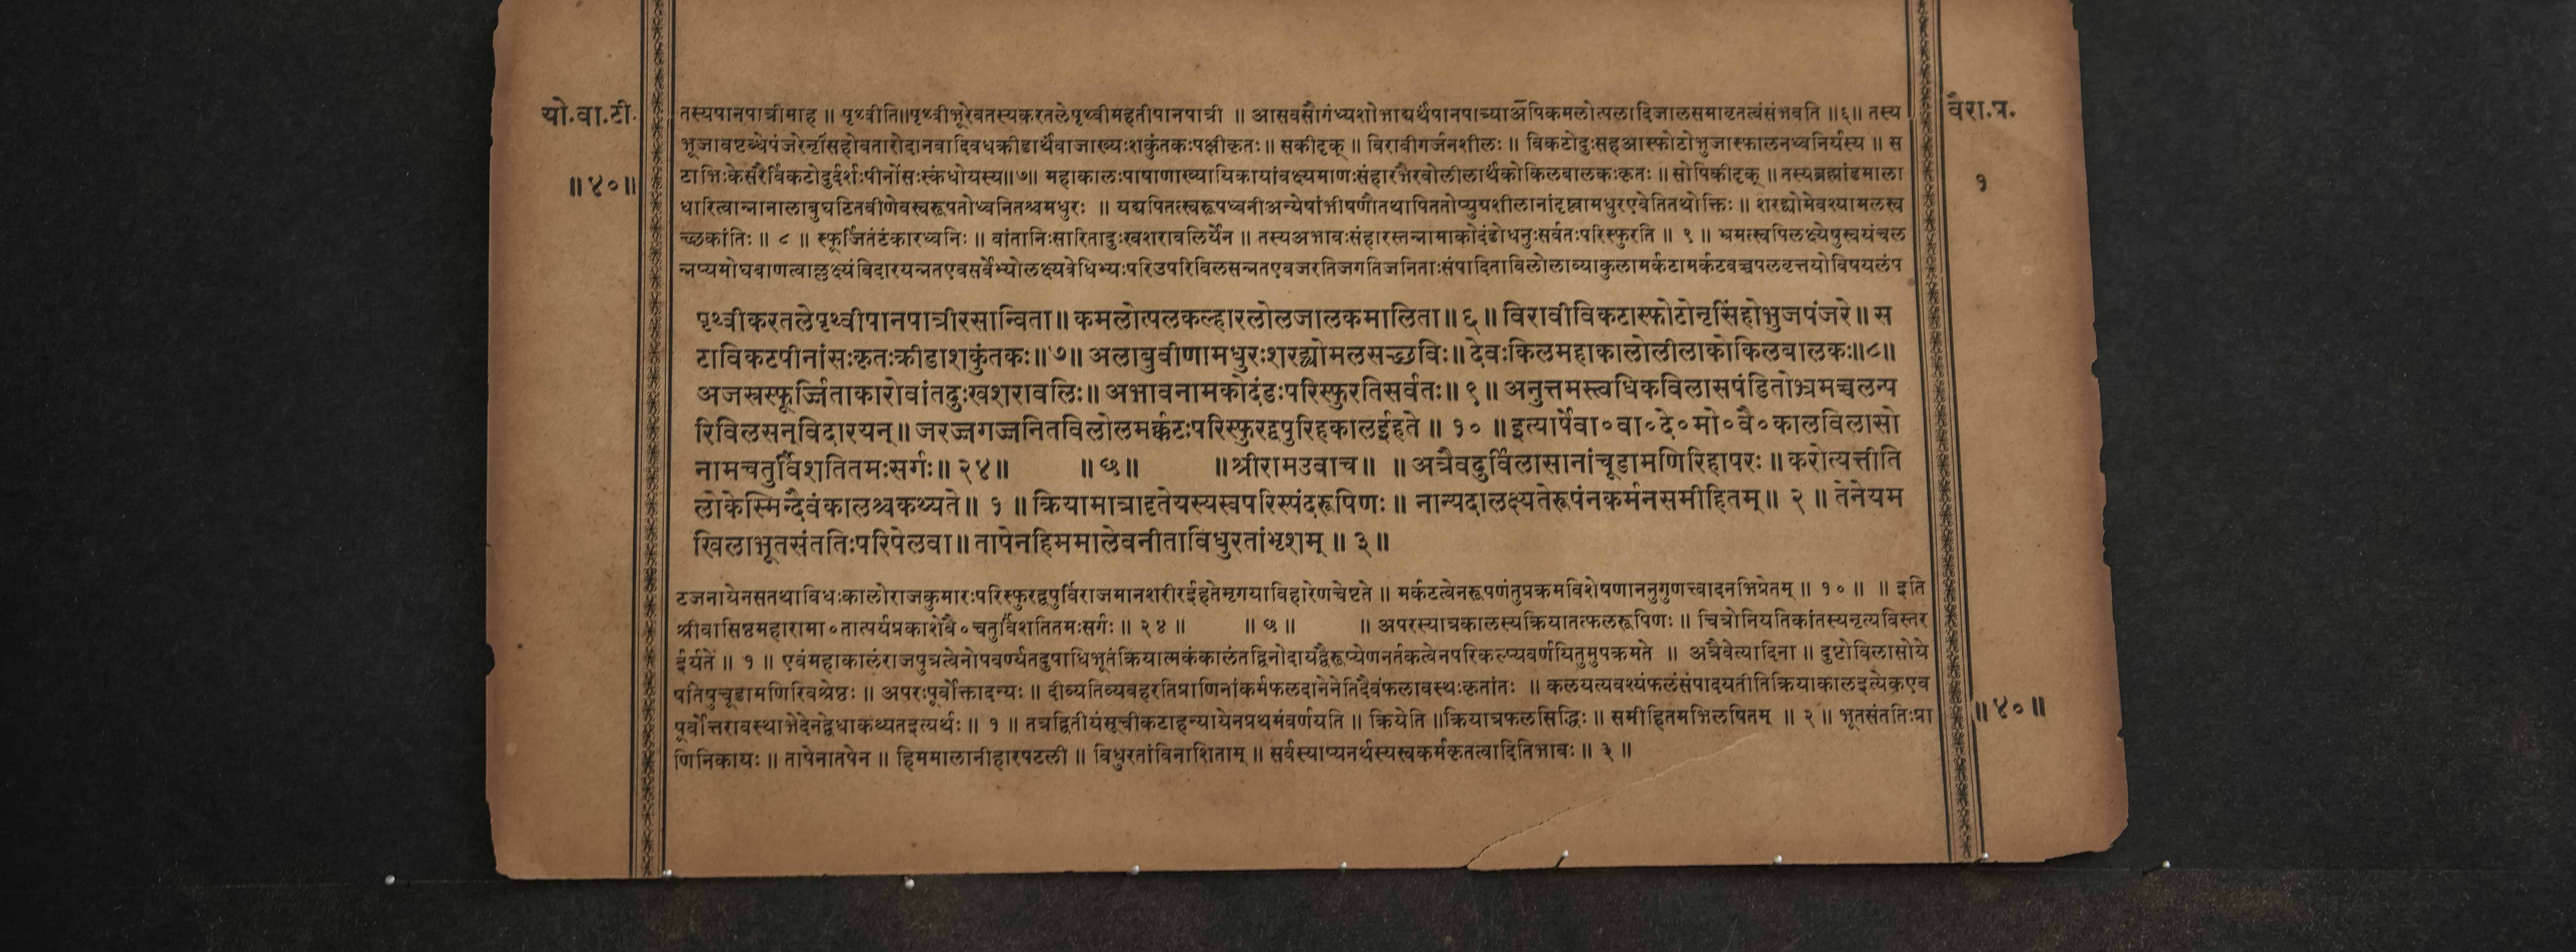 यो.वा.टी.
॥४०॥
वैरा.प्र.
१
तस्यपानपात्रीमाह ॥ पृथ्वीति॥पृथ्वीभूरेवतस्यकरतलेपृथ्वीमहतीपानपात्री ॥ आसवसौगंध्यशोभाद्यर्थंपानपात्र्याअपिकमलोत्पलादिजालसमावृतत्वंसंभवति ॥६॥ तस्य
भूजावष्टब्धेपंजरेनृसिंहोवतारोदानवादिवधक्रीडार्थंवाजाख्यःशकुंतकःपक्षीकृतः ॥ सकीदृक् ॥ विरावीगर्जनशीलः ॥ विकटोदुःसहआस्फोटोभुजास्फालनध्वनिर्यस्य ॥ स
टाभिःकेसरैर्विकटोदुर्दर्शःपीनोंसःस्कंधोयस्य॥७॥ महाकालःपाषाणाख्यायिकायांवक्ष्यमाणःसंहारभैरवोलीलार्थंकोकिलबालकःकृतः ॥ सोपिकीदृक् ॥ तस्यब्रह्मांडमाला
धारित्वान्नानालाबुघटितवीणेवस्वरूपतोध्वनितश्चमधुरः ॥ यद्यपितत्स्वरूपध्वनीअन्येषांभीषणौतथापिततोप्युग्रशीलानांदृष्ट्वामधुरएवेतितथोक्तिः ॥ शरद्व्योमेवश्यामलस्व
च्छकांतिः ॥ ८ ॥ स्फूर्जितंटंकारध्वनिः ॥ वांतानिःसारितादुःखशरावलिर्येन ॥ तस्यअभावःसंहारस्तन्नामाकोदंडोधनुःसर्वतःपरिस्फुरति ॥ ९ ॥ भ्रमत्स्वपिलक्ष्येषुस्वयंचल
न्नप्यमोघबाणत्वाल्लक्ष्यंविदारयन्नतएवसर्वेभ्योलक्ष्यवेधिभ्यःपरिउपरिविलसन्नतएवजरतिजगतिजनिताःसंपादिताविलोलाव्याकुलामर्कटामर्कटवच्चपलवृत्तयोविषयलंप
पृथ्वीकरतलेपृथ्वीपानपात्रीरसान्विता॥ कमलोत्पलकल्हारलोलजालकमालिता॥६॥ विरावीविकटास्फोटोनृसिंहोभुजपंजरे॥ स
टाविकटपीनांसःकृतःक्रीडाशकुंतकः॥७॥ अलाबुवीणामधुरःशरद्व्योमलसच्छविः॥ देवःकिलमहाकालोलीलाकोकिलबालकः॥८॥
अजस्रस्फूर्ज्जिताकारोवांतदुःखशरावलिः॥ अभावनामकोदंडःपरिस्फुरतिसर्वतः॥ ९॥ अनुत्तमस्त्वधिकविलासपंडितोभ्रमच्चलन्प
रिविलसन्विदारयन्॥ जरज्जगज्जनितविलोलमर्कटःपरिस्फुरद्वपुरिहकालईहते॥ १० ॥इत्यार्षेवा०वा०दे०मो०वै०कालविलासो
नामचतुर्विंशतितमःसर्गः॥ २४॥ ॥ ७॥ ॥श्रीरामउवाच॥ ॥ अत्रैवदुर्विलासानांचूडामणिरिहापरः॥करोत्यत्तीति
लोकेस्मिन्दैवंकालश्चकथ्यते॥ १ ॥क्रियामात्रादृतेयस्यस्वपरिस्पंदरूपिणः॥ नान्यदालक्ष्यतेरूपंनकर्मनसमीहितम्॥ २ ॥ तेनेयम
खिलाभूतसंततिःपरिपेलवा॥ तापेनहिममालेवनीताविधुरतांभृशम् ॥ ३॥
टजनायेनसतथाविधःकालोराजकुमारःपरिस्फुरद्वपुर्विराजमानशरीरईहतेमृगयाविहारेणचेष्टते ॥ मर्कटत्वेनरूपणंतुप्रक्रमविशेषणाननुगुणत्त्वादनभिप्रेतम् ॥ १० ॥ ॥ इति
श्रीवासिष्ठमहारामा०तात्पर्यप्रकाशेवै०चतुर्विंशतितमःसर्गः ॥ २४ ॥ ॥ ७ ॥ ॥ अपरस्यात्रकालस्यक्रियातत्फलरूपिणः ॥ चित्रोनियतिकांतस्यनृत्यविस्तर
ईर्यते ॥ १ ॥ एवंमहाकालंराजपुत्रत्वेनोपवर्ण्यतदुपाधिभूतंक्रियात्मकंकालंतद्विनोदायद्वैरूप्येणनर्तकत्वेनपरिकल्प्यवर्णयितुमुपक्रमते ॥ अत्रैवेत्यादिना ॥ दुष्टोविलासोये
षांतेषुचूडामणिरिवश्रेष्ठः ॥ अपरःपूर्वोक्तादन्यः ॥ दीव्यतिव्यवहरतिप्राणिनांकर्मफलदानेनेतिदैवंफलावस्थःकृतांतः ॥ कलयत्यवश्यंफलंसंपादयतीतिक्रियाकालइत्येकएव
पूर्वोत्तरावस्थाभेदेनद्वेधाकथ्यतइत्यर्थः ॥ १ ॥ तत्रद्वितीयंसूचीकटाहन्यायेनप्रथमंवर्णयति ॥ क्रियेति ॥क्रियात्रफलसिद्धिः ॥ समीहितमभिलषितम् ॥ २ ॥ भूतसंततिःप्रा
णिनिकायः ॥ तापेनातपेन ॥ हिममालानीहारपटली ॥ विधुरतांविनाशिताम् ॥ सर्वस्याप्यनर्थस्यस्वकर्मकृतत्वादितिभावः ॥ ३ ॥
॥४०॥